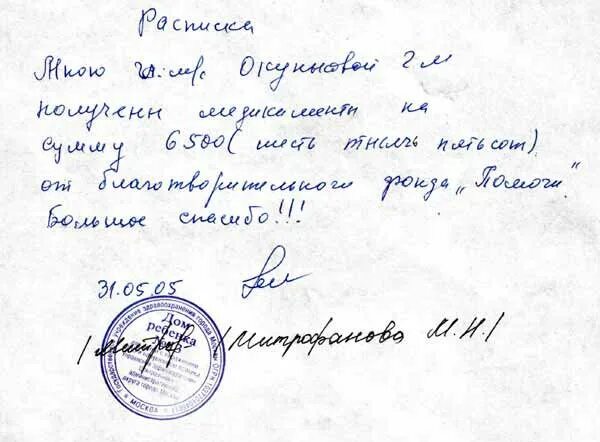 Расписка
Мною гл. м/с Окуньковой Г М
получены медикаменты на
сумму 6500 (шесть тысяч пятьсот)
от благотворительного фонда „Помоги".
Большое спасибо!!!
31.05.05
Дом
ребенка
/Митрофанова М.Н./
административного
округа города Москвы
МОСКВА